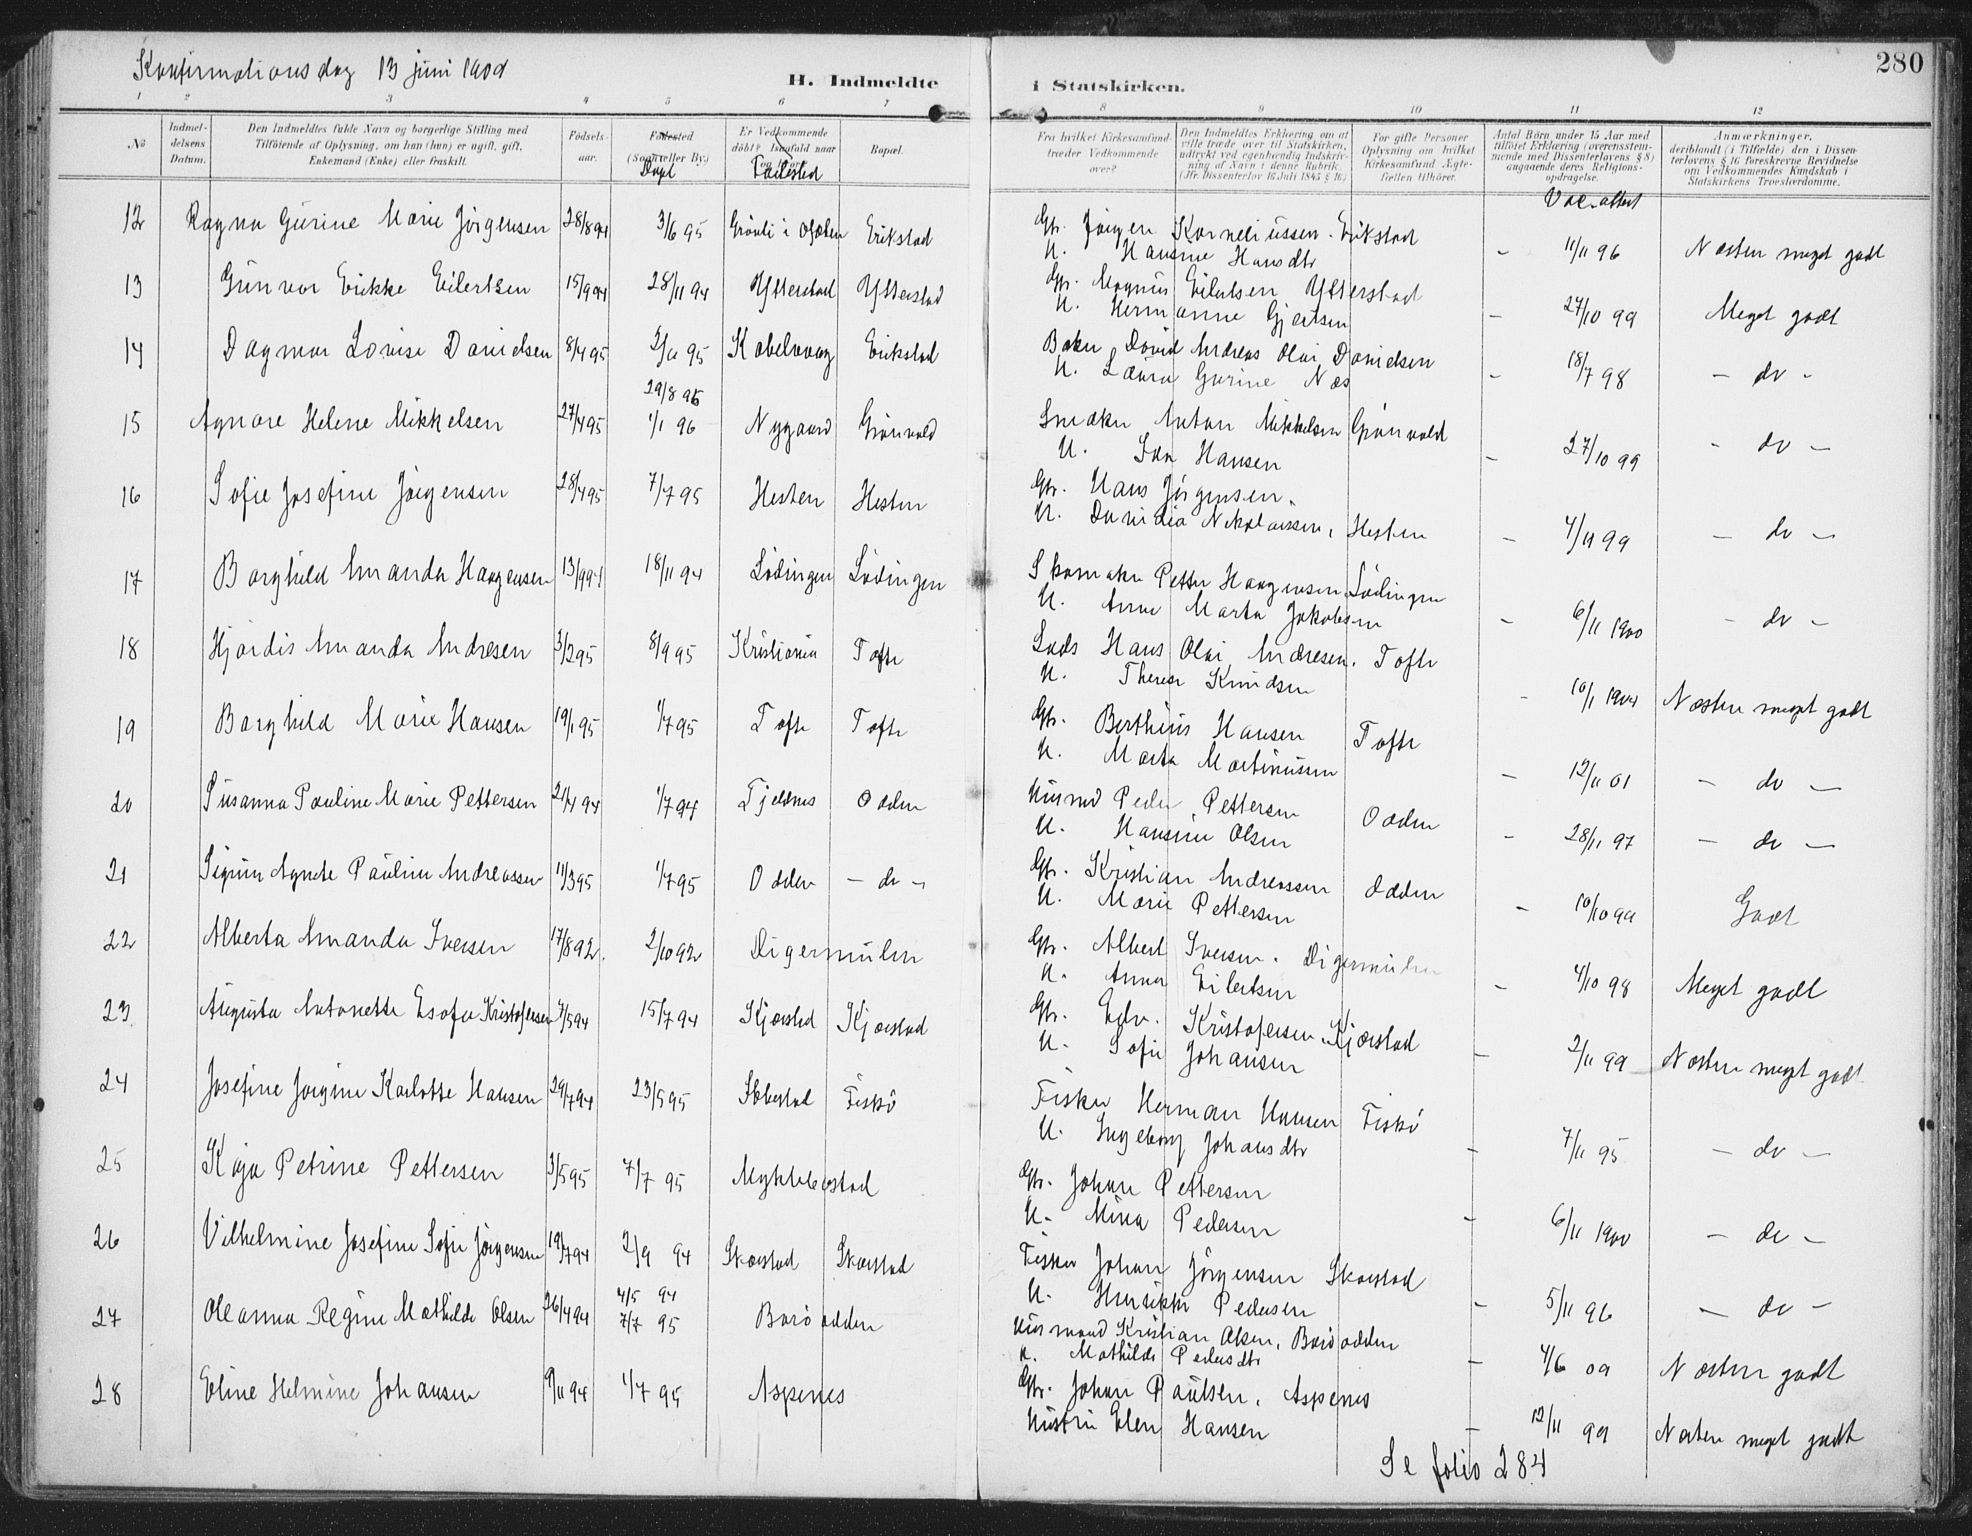 Konfirmations dag 13 juni 1909
H. Indmeldte i Statskirken.
280
1 2 3 4 5 6 7 8 9 10 11 12
No
Indmeldelsens Datum.
Den Indmeldtes fulde Navn og borgerlige Stilling med Tilføiende af Oplysning, om han (hun) er ugift, gift, Enkemand (Enke) eller fraskilt.
Fødselsaar.
Fødested (Sogn eller By.)
Døpt
Er Vedkommende døbt? Isaafald naar og hvor?
Fødested
Bopæl.
Fra hvilket Kirkesamfund træder Vedkommende over?
Den Indmeldtes Erklæring om at ville træde over til Statskirken, udtrykt ved egenhændig Indskrivning af Navn i denne Rubrik. (Jfr. Dissenterlov 16 Juli 1845 § 16)
For gifte Personer Oplysning om hvilket Kirkesamfund Ægtefællen tilhører.
Antal Børn under 15 Aar med tilføiet Erklæring (overensstemmende med Dissenterlovens § 8) angaaende deres Religionsopdragelse.
Vac. attest
Anmærkninger, deriblandt (i Tilfælde) den i Dissenterlovens § 16 foreskrevne Bevidnelse om Vedkommendes Kundskab i Statskirkens Troeslærdomme.
12 Ragna Gurine Marie Jørgensen 28/8 94 3/6 95 Grøvli i Ofoten Erikstad Gbr. Jørgen Korneliussen. Erikstad
H. Hansine Hansdtr - 11/11 96 Næsten meget godt
13 Gunvor Erikke Eilertsen 15/9 94 28/11 94 Ytterstad Ytterstad Gbr. Magnus Eilertsen Ytterstad
H. Hermanne Gjertsen - 27/10 99 Meget godt
14 Dagmar Lovise Danielsen 8/4 95 2/11 95 Kabelvaag Erikstad Baker David Andreas Olai Danielsen
H. Laura Gurine Næs - 18/7 98 - do -
29/8 95
15 Agnare Helene Mikkelsen 27/4 95 1/1 96 Nygaard Grønvold Snedker Anton Mikkelsen Grønvold
H. Ida Hansen - 27/10 99 - do -
16 Sofie Josefine Jørgensen 28/4 95 7/7 95 Hesten Hesten Gbr. Hans Jørgensen.
H. Danidia Nikolaissen, Hesten - 4/11 99 - do -
17 Borghild Amanda Haagensen 13/9 94 18/11 94 Lødingen Lødingen Skomaker Petter Haagensen Lødingen
H. Anne Marta Jakobsen - 6/11 1900 - do -
18 Hjørdis Amanda Andresen 3/2 95 8/9 95 Kristiania Tofte Lods Hans Olai Andresen. Tofte
H. Therese Knudsen - 10/1 1904 Næsten meget godt
19 Borghild Marie Hansen 19/1 95 1/7 95 Tofte Tofte Gbr. Berthëus Hansen Tofte
H. Marta Martinussen - 12/11 01 - do -
20 Susanna Pauline Marie Pettersen 21/4 94 1/7 94 Fjeldnes Odden Husmd Peder Pettersen Odden
H. Hansine Olsen - 28/11 97 - do -
21 Sigrun Agnete Pauline Andreassen 11/3 95 1/7 95 Odden - do - Gbr. Kristian Andreassen Odden
H. Marie Pettersen - 10/10 99 Godt
22 Alberta Amanda Iversen 17/8 92. 2/10 92 Digermulen Gbr. Albert Iversen. Digermulen
H. Anna Eilertsen - 4/10 98 Meget godt
23 Augusta Antonette Esofie Kristofersen 4/5 94 15/7 94 Kjørstad Kjørstad Gbr. Edv. Kristofersen, Kjørstad
H. Sofie Johansen - 2/11 99 Næsten meget godt
24 Josefine Jørgine Karlotte Hansen 29/7 94 23/5 95 Ibbestad Fiskø Fisker Herman Hansen Fiskø
H. Ingeborg Johansdtr - 7/11 95 - do -
25 Kaja Petrine Pettersen 3/5 95 7/7 95 Myklebostad Gbr. Johan Pettersen
H. Mina Pedersen - 6/11 1900 - do -
26 Vilhelmine Josefine Sofie Jørgensen 19/7 94 2/9 94 Skarstad Skarstad Fisker Johan Jørgensen Skarstad
H. Henrikke Pedersen - 5/11 96 - do -
27 Oleanna Regine Mathilde Olsen 26/4 94 4/5 94
7/7 95 Barøodden Husmand Kristian Olsen, Barøodden
H. Mathilde Pedersdtr - 4/6 09 Næsten godt
28 Eline Helmine Johansen 9/11 94 1/7 95 Aspenes Gbr. Johan Paulsen, Aspenes
Hustru Elen Hansen - 12/11 99 Næsten meget godt
Se folio 284